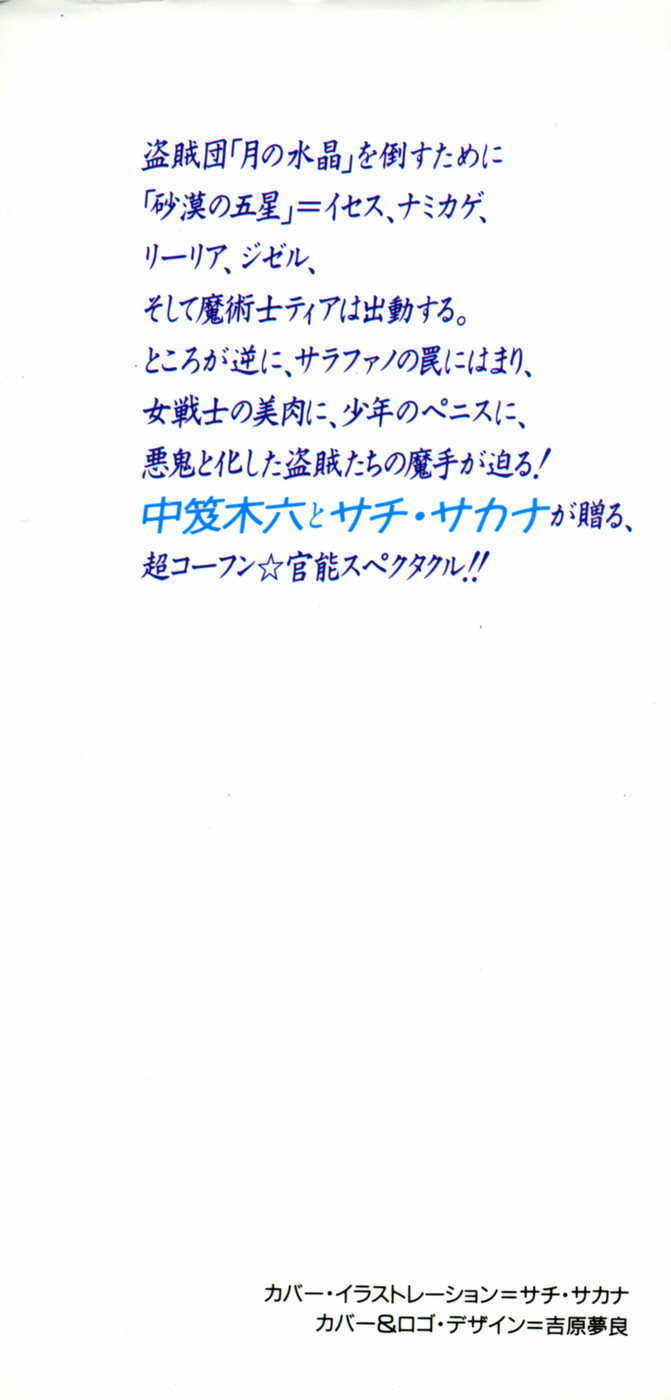 盗賊団「月の水晶」を倒すために
「砂漠の五星」＝イセス、ナミカゲ、
リーリア、ジゼル、
そして魔術士ティアは出動する。
ところが逆に、サラファノの罠にはまり、
悪鬼と化した盗賊たちの魔手が迫る！
中笈木六とサチ・サカナが贈る、
超コーフン☆官能スペクタクル!!
カバー・イラストレーション＝サチ・サカナ
カバー＆ロゴ・デザイン＝吉原夢良